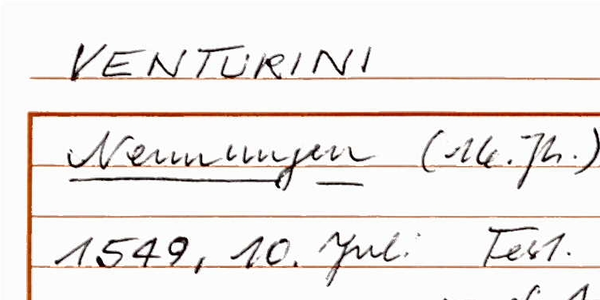 VENTURINI
Nennungen (16. Jh.)
1549, 10. Juli Test.